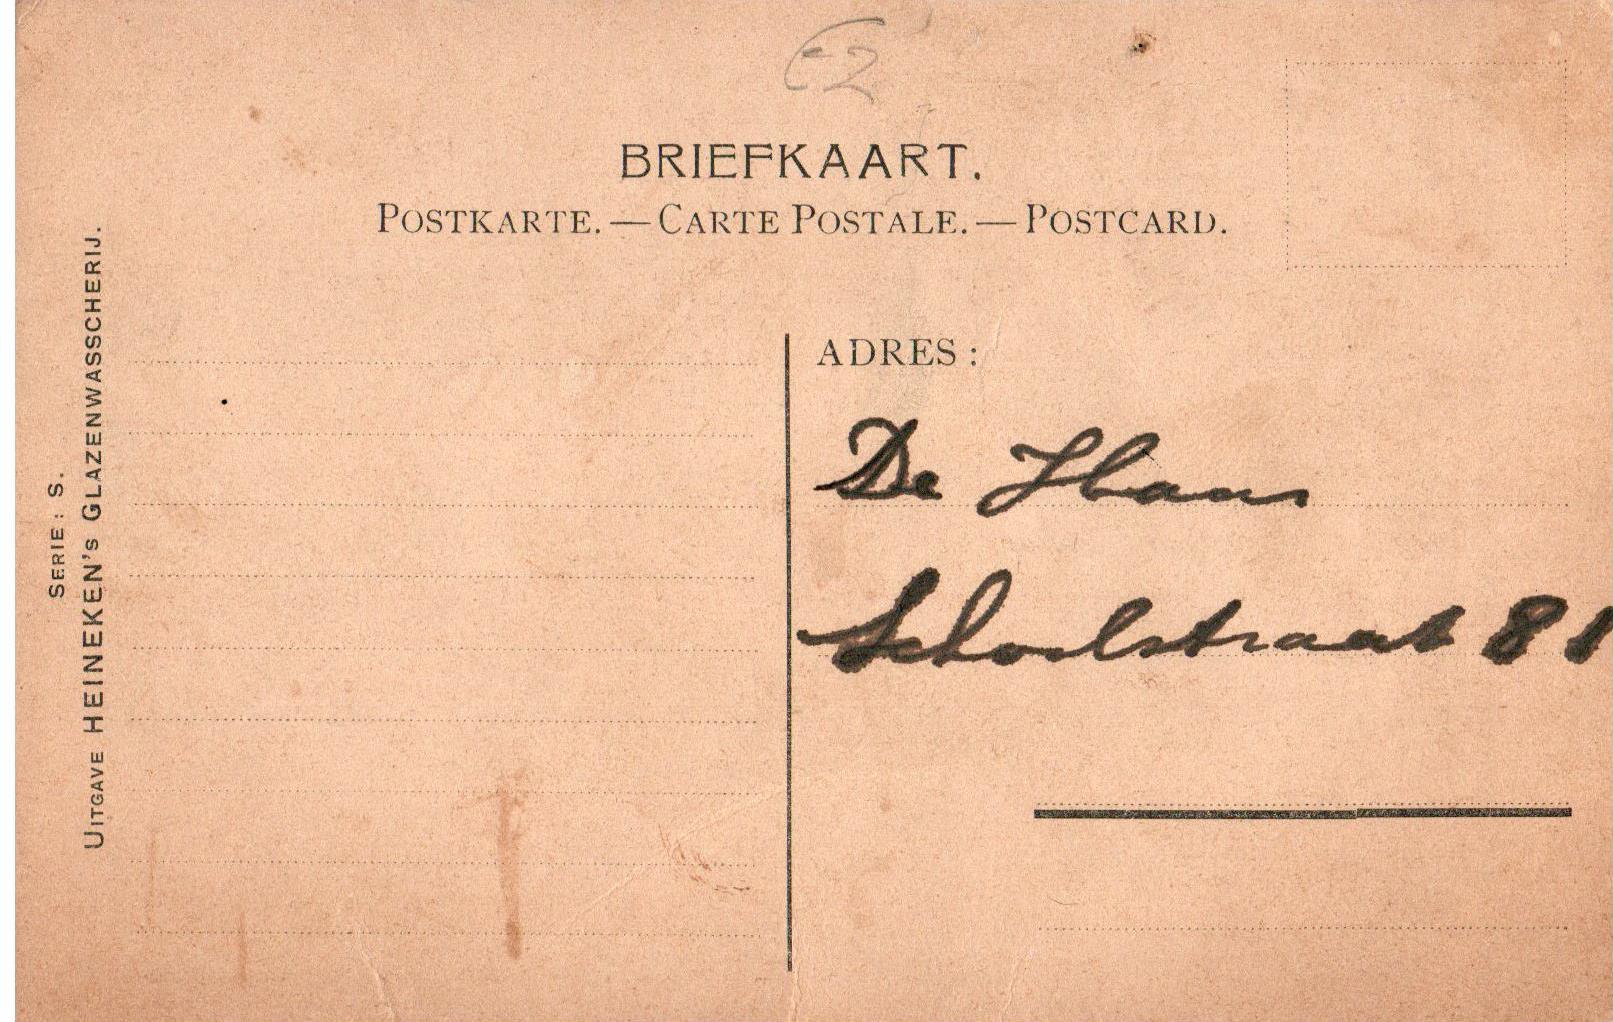 €2
BRIEFKAART.
POSTKARTE. — CARTE POSTALE. — POSTCARD.
SERIE: S.
UITGAVE HEINEKEN's GLAZENWASSCHERIJ.
ADRES:
De Haan
Schoolstraat 81